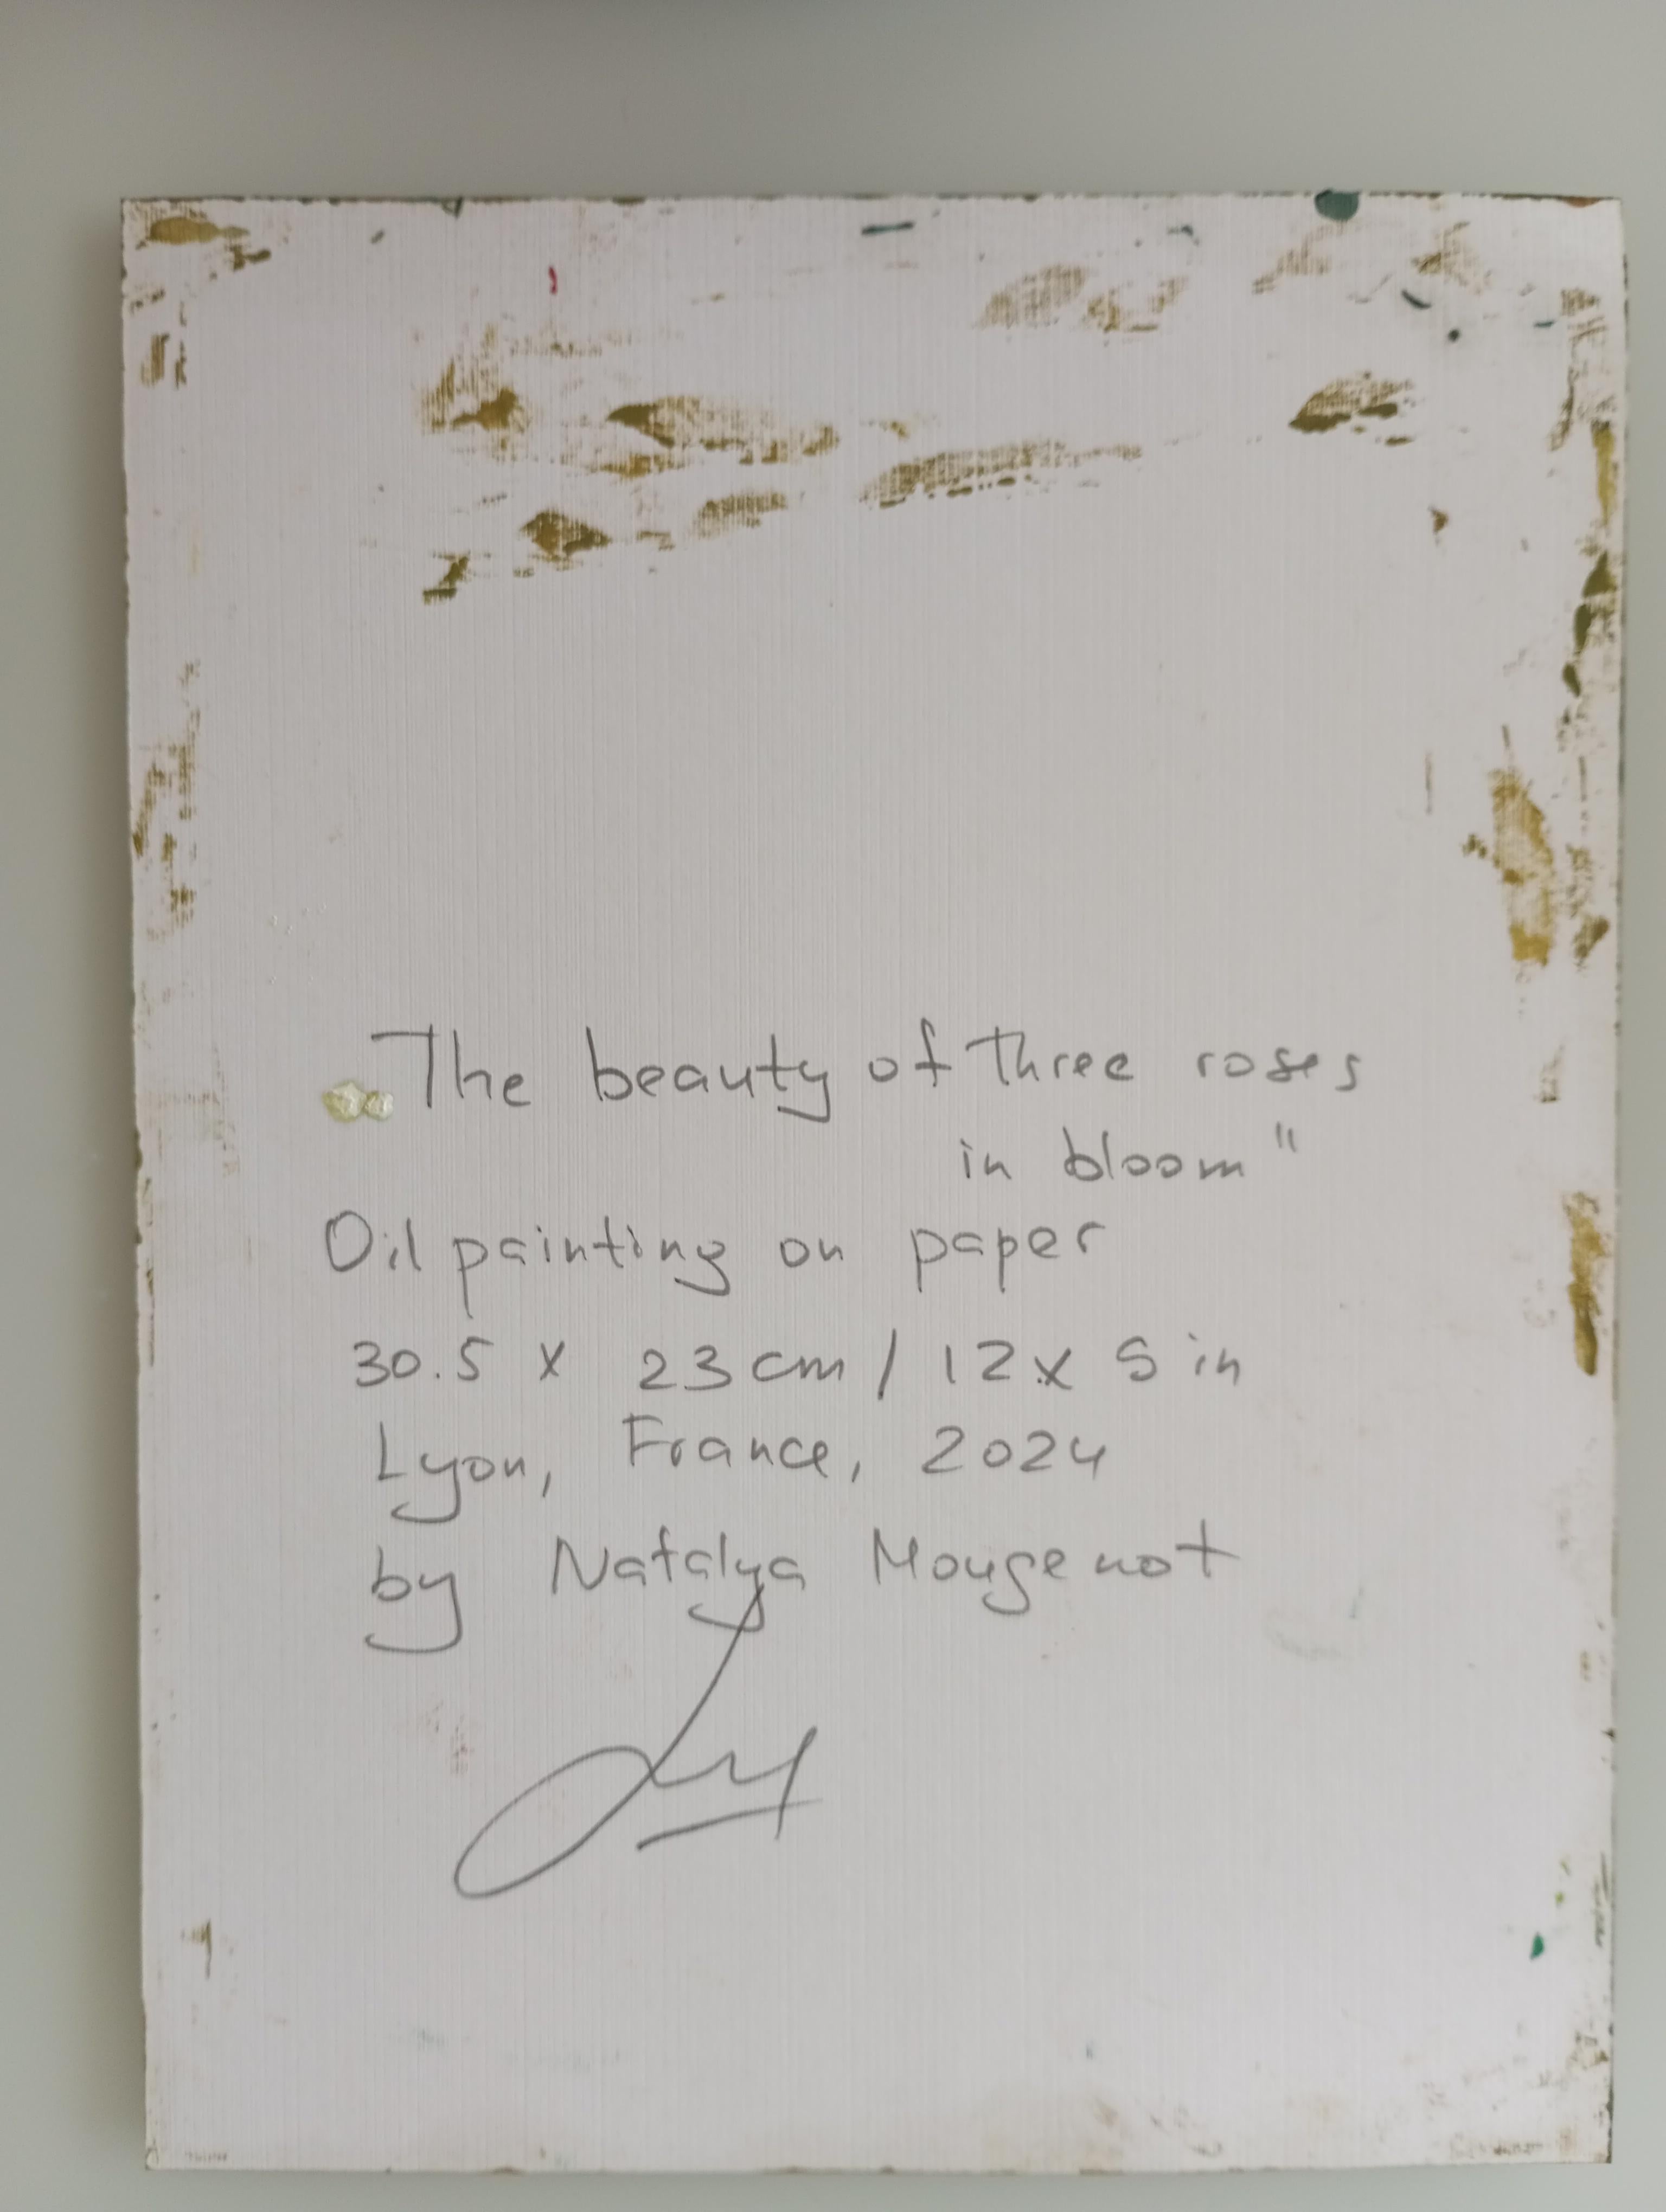 The beauty of three roses
in bloom"
Oil painting on paper
30.5 x 23 cm / 12 x 9 in
Lyon, France, 2024
by Natalya Mougenot